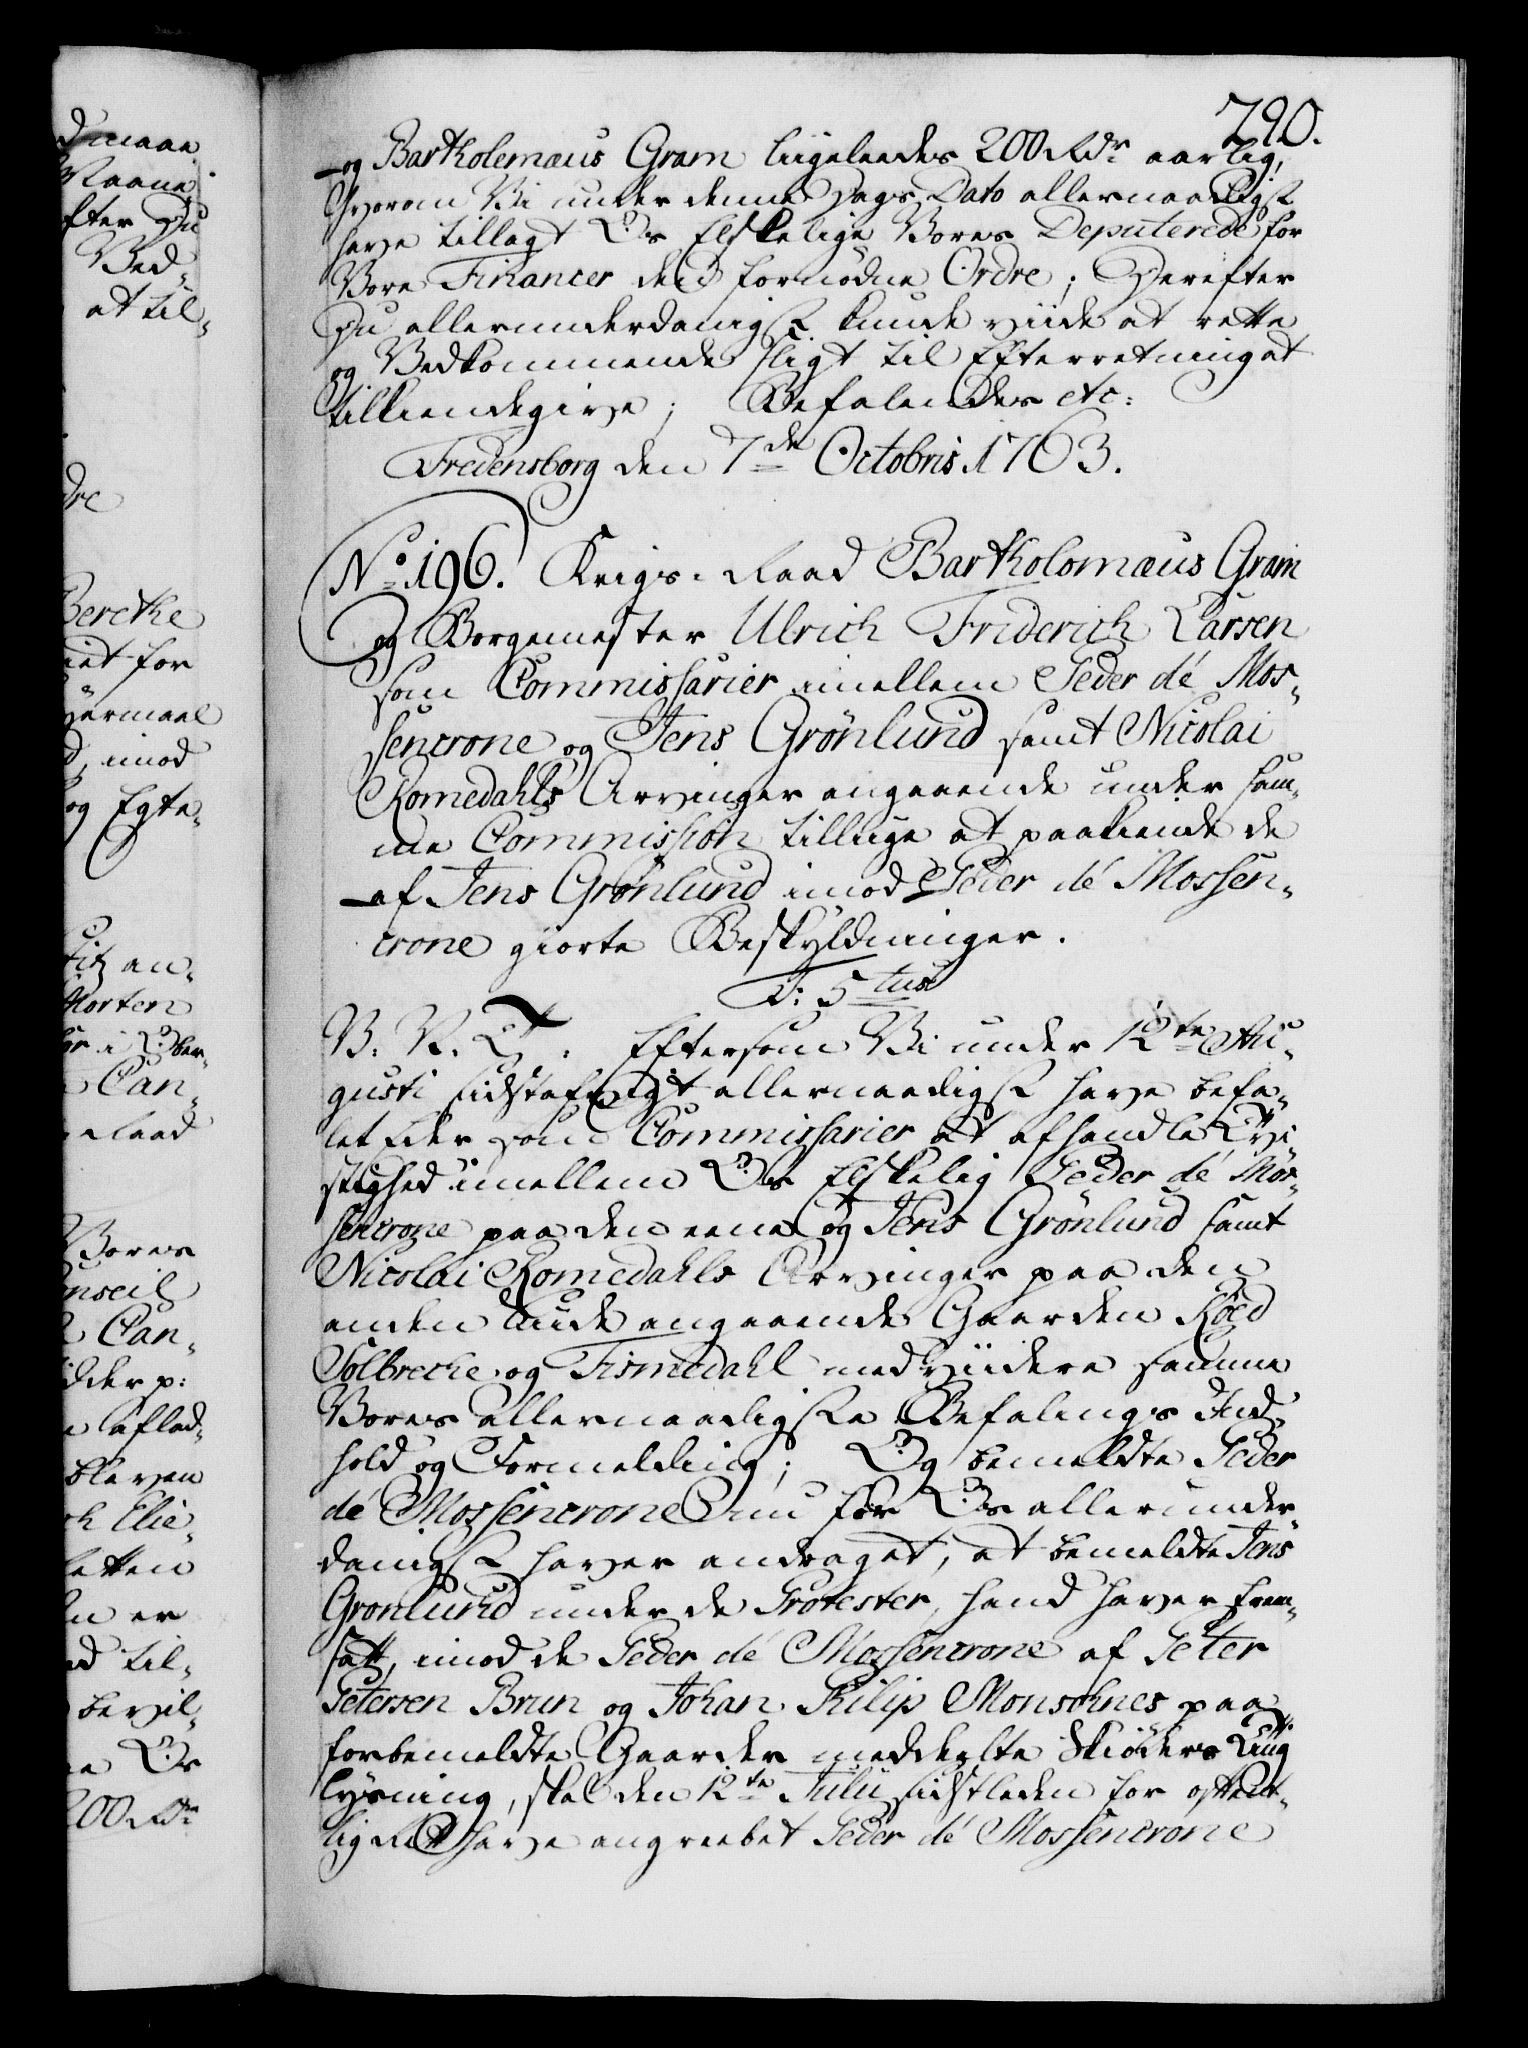 790.
og Bartholemæus Gram liigeleedes 200 Rdr aarlig,
hvorom Vi under denne Dags Dato allernaadigst
have tillagt Os Elskelige Vores Deputerede for
Vore Financer den fornødne Ordre; Derefter
Du allerunderdanigst kunde viide at rette
og Vedkommende sligt til Efterretning at
tilkiendegive; Befalendes etc:
Fredensborg den 7de Octobris 1763.
No. 196. Krigs-Raad Bartholomæus Gram
og Borgemester Ulrich Friderich Larsen
som Commissarier imellem Peder dé Mos-
sencrone og Jens Grønlund samt Nicolai
Romedahls Arvinger angaaende under sam-
me Commission tilliige at paakiende de
af Jens Grønlund imod Peder dé Mossen-
crone giorte Beskyldninger.
F: 5tus
V. V. G. T. Eftersom Vi under 12te Au-
gusti sidstafvigt allernaadigst have befa-
let Eder som Commissarier at afhandle Tvi
stighed imellem Os Elskelig Peder dé Mos-
sencrone paa den eene og Jens Grønlund samt
Nicolai Romedahls Arvinger paa den
anden Siide angaaende Gaarden Røed
Solbreche og Tismedahl med viidere samme
Vores allernaadigste Befalings Ind-
hold og Formelding; Og bemeldte Peder
dé Mossencrone nu for Os allerunder-
danigst haver andraget, at bemeldte Jens
Grønlund under de Protester, hand haver frem-
satt, imod de Peder dé Mossencrone af Peter
Petersen Brun og Johan Philip Monsohnes paa
forbemeldte Gaarder meddeelte Skiøders Ting
lysning, skal den 12te Julii sidstleden for offent-
lig Ret have angreebet Peder dé Mossencrone